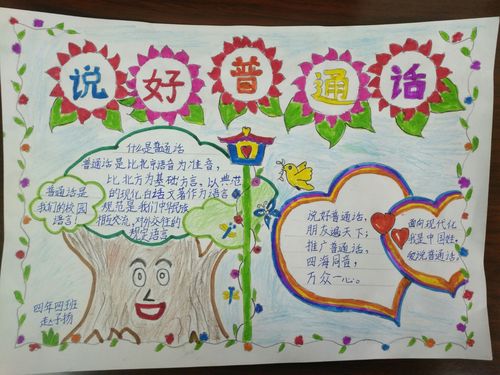 说好普通话
什么是普通话
普通话是比北京语音为准音，
比北方为基础方言。以典范
的现代白话文著作为语言
规范是我们中华民族
相互交流，对外公往的
规定语言
普通话是
我们的校园
语言
说好普通话，
朋友遍天下；
推广普通话，
四海同音，
万众一心。
面向现代化
我是中国娃，
爱说普通话，
四年四班
赵子扬